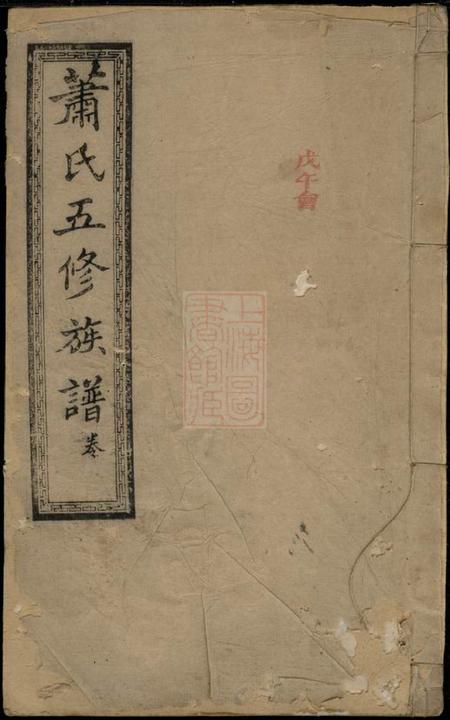 戊午會
上海圖
書館藏
蕭氏五修族譜
卷